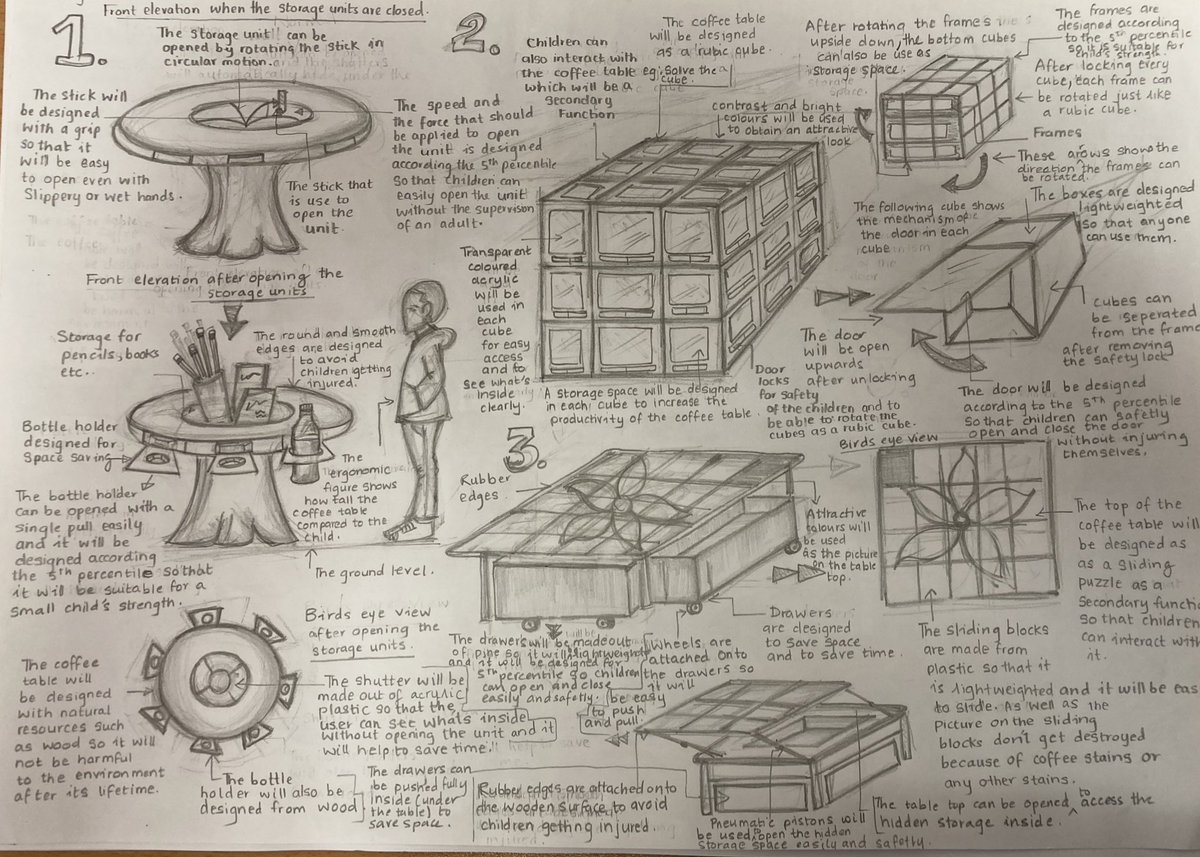 1.
Front elevation when the storage units are closed.
The storage unit can be
opened by rotating the stick in
circular motion.
The stick will
be designed
with a grip
so that it
will be easy
to open even with
slippery or wet hands.
The stick that
is use to
open the
unit.
The speed and
the force that should
be applied to open
the unit is designed
according the 5th percentile
So that children can
easily open the unit
without the supervison
of an adult.
Front elevation after opening the
storage units
Storage for
pencils, books
etc..
The round and smooth
edges are designed
to avoid
children getting
injured.
Bottle holder
designed for
space saving
The bottle holder
can be opened with a
single pull easily
and it will be
designed according
the 5th percentile so that
it will be suitable for a
small child's strength.
The
ergonomic
figure shows
how tall the
coffee table
compared to the
child.
The ground level.
Birds eye view
after opening the
storage units.
The coffee
table will
be designed
with natural
resources such
as wood so it will
not be harmful
to the environment
after its lifetime.
The shutter will be
made out of acrylic
plastic so that the
user can see whats inside
without opening the unit and it
will help to save time.
The bottle
holder will also be
designed from wood
2.
Children can
also interact with
the coffee table eg: solve the
cube.
which will be a
secondary
Function
The coffee table
will be designed
as a rubic cube.
contrast and bright
colours will be used
to obtain an attractive
look
After rotating the frames
upside down, the bottom cubes
can also be use as
storage space.
The frames are
designed according
to the 5th percentile
so it is suitable for
child's strength.
After locking every
cube, each frame can
be rotated just like
a rubic cube.
Frames
These arows show the
direction the frames can
be rotated.
Transparent
coloured
acrylic
will be
used in
each
cube
for easy
access
and to
see what's
inside
clearly.
A storage space will be designed
in each cube to increase the
productivity of the coffee table.
The following cube shows
the mechanism of
the door in each
cube
The boxes are designed
lightweighted
so that anyone
can use them.
The door
will be open
upwards
after unlocking
Door
locks
for safety
of the children and to
be able to rotate the
cubes as a rubic cube.
Cubes can
be seperated
from the frame
after removing
the safety lock
The door will be designed
according to the 5th percentile
So that children can safetly
open and close the door
without injuring
themselves.
3.
Rubber
edges.
Attractive
colours will
be used
as the picture
on the table
top.
Birds eye view
The top of the
coffee table will
be designed as
as a sliding
puzzle as a
secondary functi
so that children
can interact wit
it.
The drawers will be made out
of pipe so it will lightweight
and it will be designed for
5th percentile so children
can open and close
easily and safetly.
wheels are
attached onto
the drawers so
it will
be easy
to push
and pull.
Drawers
are designed
to save space
and to save time.
The sliding blocks
are made from
plastic so that it
is lightweighted and it will be eas
to slide. As well as the
picture on the sliding
blocks don't get destroyed
because of coffee stains or
any other stains.
The drawers can
be pushed fully
inside (under
the table) to
save space.
Rubber edges are attached onto
the wooden surface to avoid
children getting injured.
Pneumatic pistons will
be used to open the hidden
storage space easily and safetly.
The table top can be opened to access the
hidden storage inside.